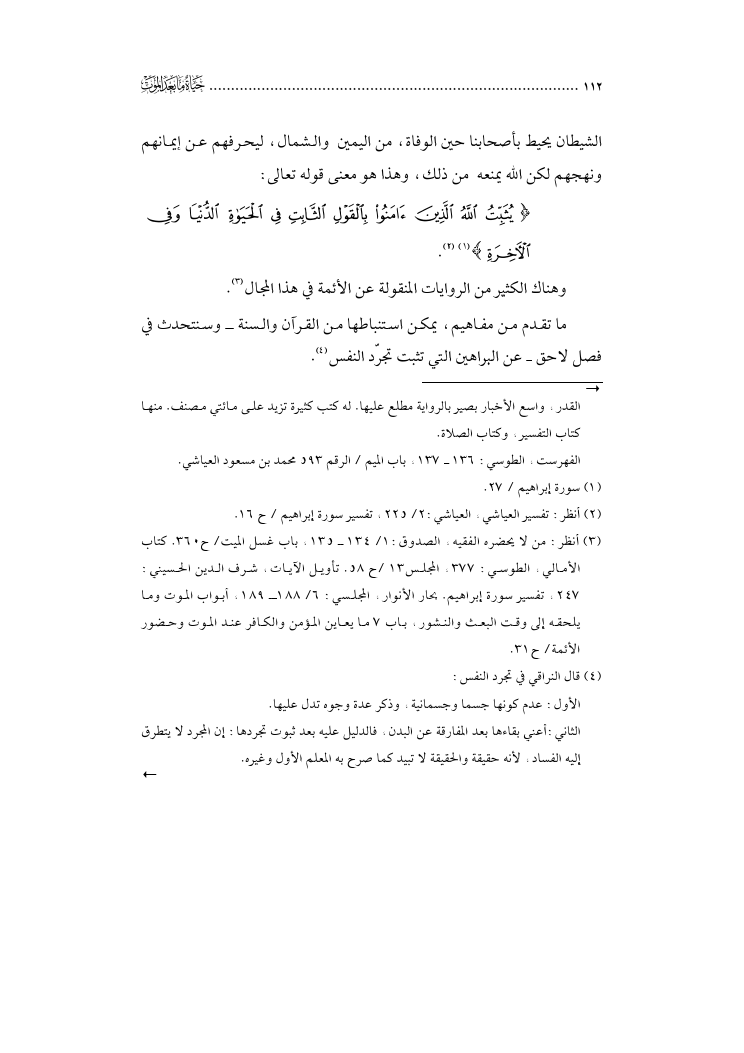 ١١٢ ........................................................................ حياة ما بعد الموت
الشيطان يحيط بأصحابنا حين الوفاة، من اليمين والشمال، ليحرفهم عن إيمانهم
ونهجهم لكن الله يمنعه من ذلك، وهذا هو معنى قوله تعالى:
﴿ يُثَبِّتُ ٱللَّهُ ٱلَّذِينَ ءَامَنُواْ بِٱلْقَوْلِ ٱلثَّابِتِ فِى ٱلْحَيَوٰةِ ٱلدُّنْيَا وَفِى
ٱلْأَخِرَةِ ﴾(١) (٢).
وهناك الكثير من الروايات المنقولة عن الأئمة في هذا المجال(٣).
ما تقدم من مفاهيم، يمكن استنباطها من القرآن والسنة ــ وسنتحدث في
فصل لاحق ــ عن البراهين التي تثبت تجرّد النفس(٤).
→
القدر، واسع الأخبار بصير بالرواية مطلع عليها. له كتب كثيرة تزيد على مائتي مصنف. منها
كتاب التفسير، وكتاب الصلاة.
الفهرست، الطوسي: ١٣٦ــ ١٣٧، باب الميم / الرقم ٥٩٣ محمد بن مسعود العياشي.
(١) سورة إبراهيم / ٢٧.
(٢) أنظر: تفسير العياشي، العياشي:٢/ ٢٢٥، تفسير سورة إبراهيم / ح ١٦.
(٣) أنظر: من لا يحضره الفقيه، الصدوق:١/ ١٣٤ ــ ١٣٥، باب غسل الميت/ ح٣٦٠. كتاب
الأمالي، الطوسي: ٣٧٧، المجلس١٣ /ح ٥٨. تأويل الآيات، شرف الدين الحسيني:
٢٤٧، تفسير سورة إبراهيم. بحار الأنوار، المجلسي: ٦/ ١٨٨ــ ١٨٩، أبواب الموت وما
يلحقه إلى وقت البعث والنشور، باب ٧ ما يعاين المؤمن والكافر عند الموت وحضور
الأئمة/ ح٣١.
(٤) قال النراقي في تجرد النفس:
الأول: عدم كونها جسما وجسمانية، وذكر عدة وجوه تدل عليها.
الثاني:أعني بقاءها بعد المفارقة عن البدن، فالدليل عليه بعد ثبوت تجردها: إن المجرد لا يتطرق
إليه الفساد، لأنه حقيقة والحقيقة لا تبيد كما صرح به المعلم الأول وغيره.
←